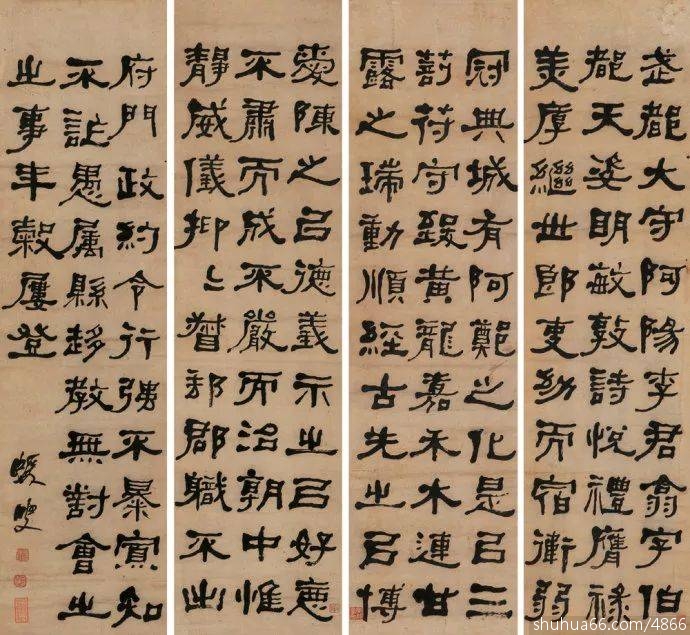 武都大守阿陽李君翕字伯
都天姿明敏敦詩悅禮膺祿
美厚繼世郎吏幼而宿衛弱
冠典城有阿鄭之化是㠯三
莂符守致黃龍嘉禾木連甘
露之瑞動順經古先之㠯博
愛陳之㠯德義示之㠯好惡
不肅而成不嚴而治朝中惟
靜威儀抑〻督郵郡職不出
府門政約令行强不暴寡知
不詐愚屬縣趍教無對會之
之事年穀屢登
蝯叟
shuhua66.com/4866